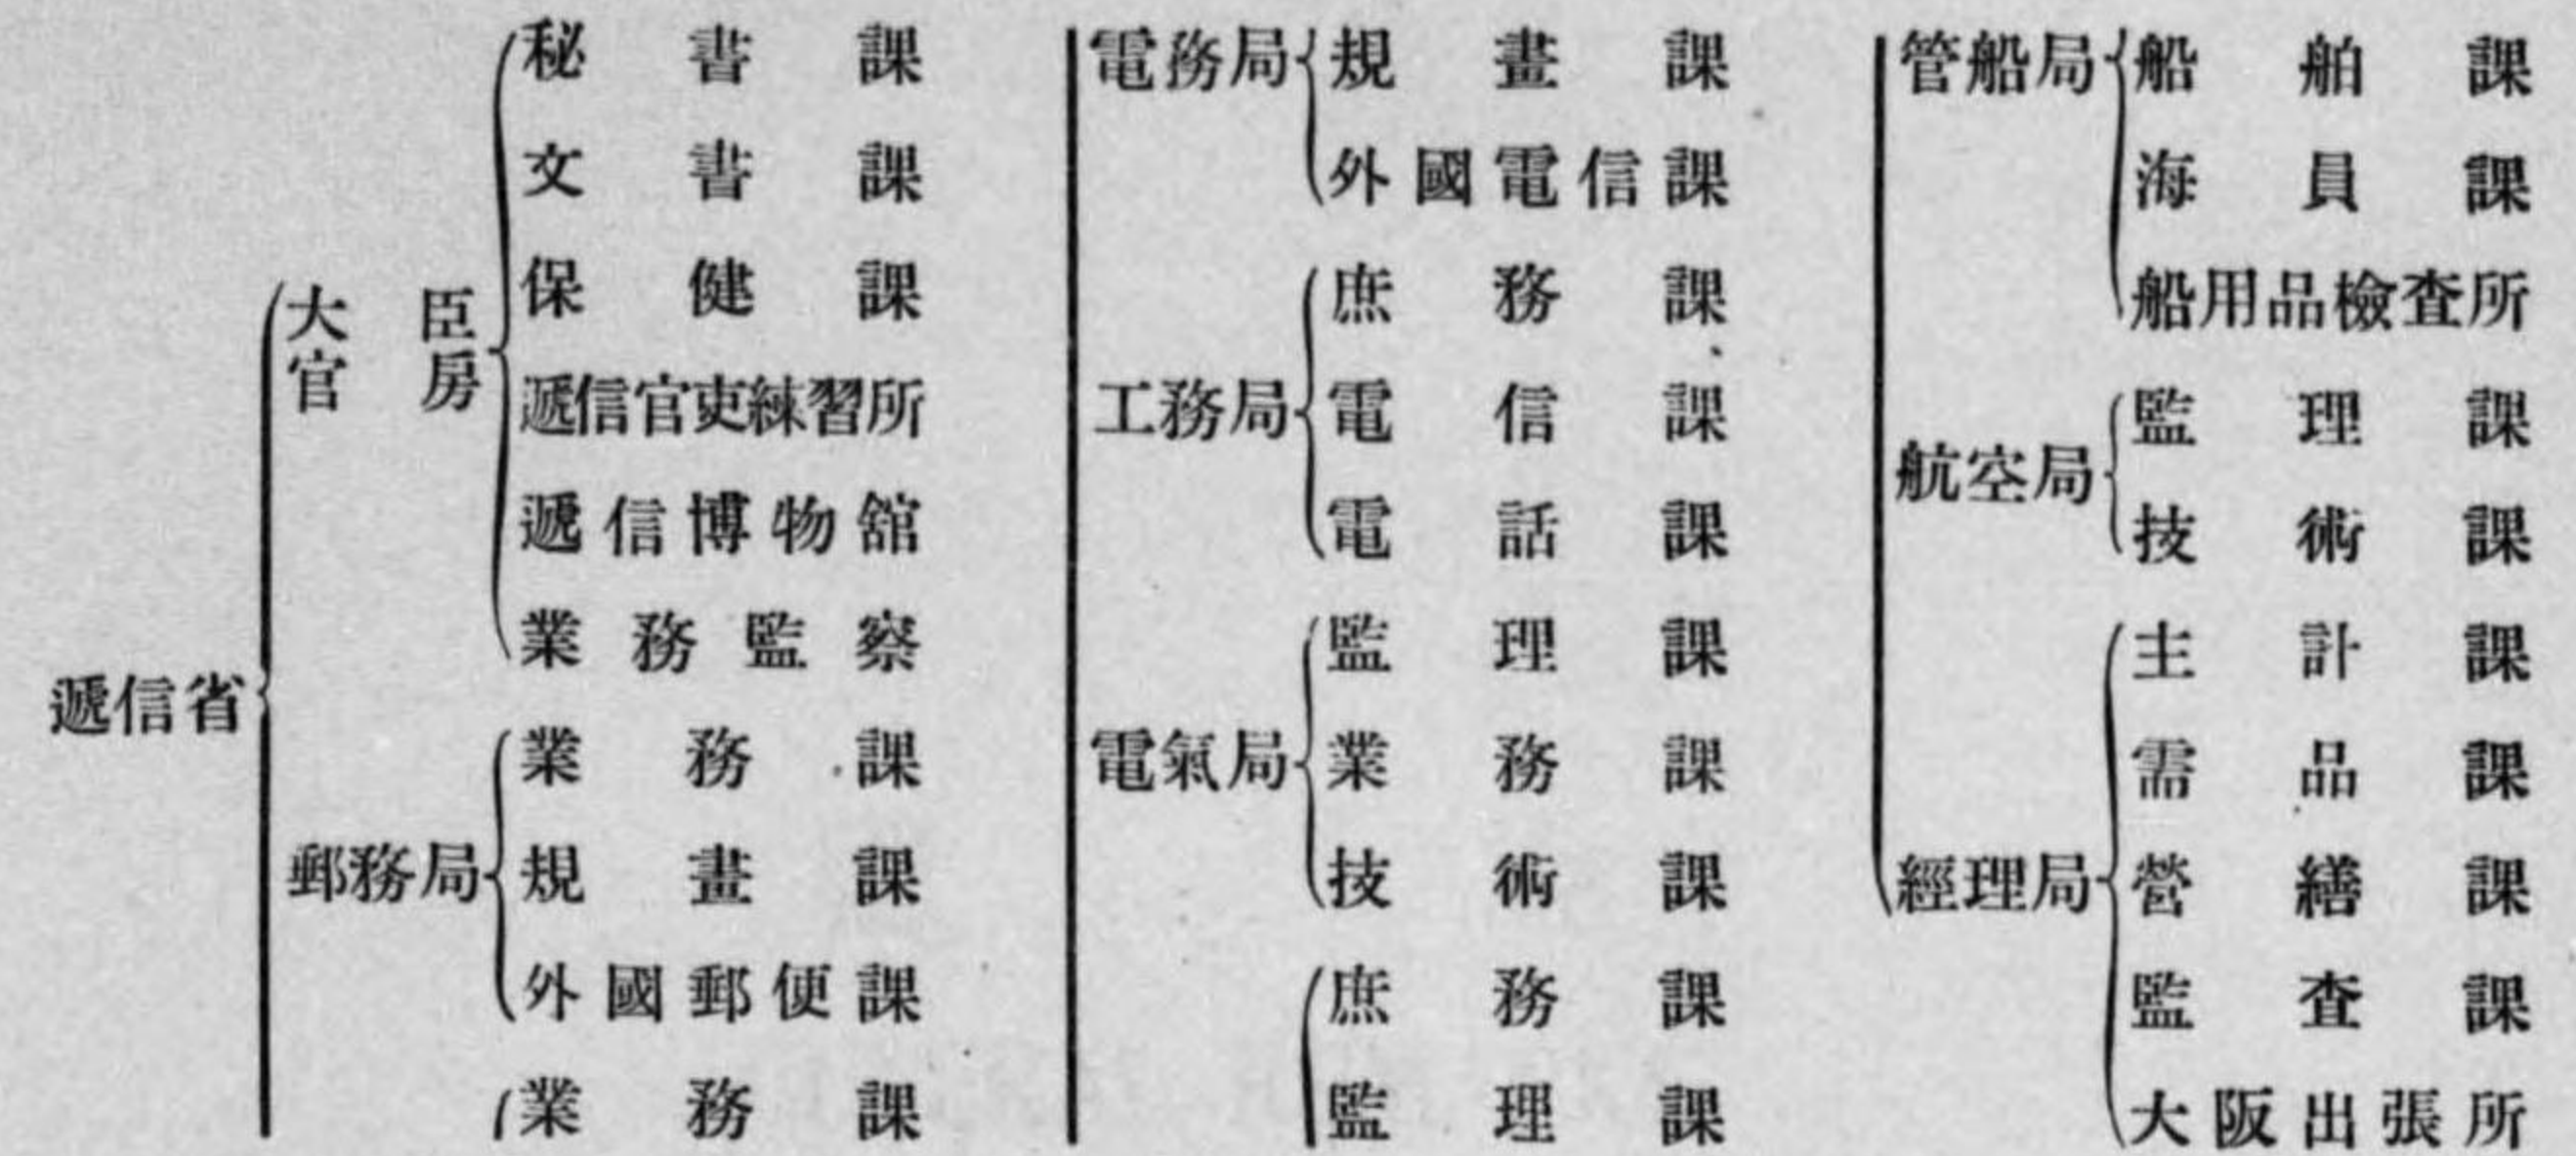 遞信省
大臣官房
秘書課
文書課
保健課
遞信官吏練習所
遞信博物館
業務監察
郵務局
業務課
規畫課
外國郵便課
業務課
電務局
規畫課
外國電信課
工務局
庶務課
電信課
電話課
電氣局
監理課
業務課
技術課
庶務課
監理課
管船局
船舶課
海員課
船用品檢査所
航空局
監理課
技術課
經理局
主計課
需品課
營繕課
監査課
大阪出張所